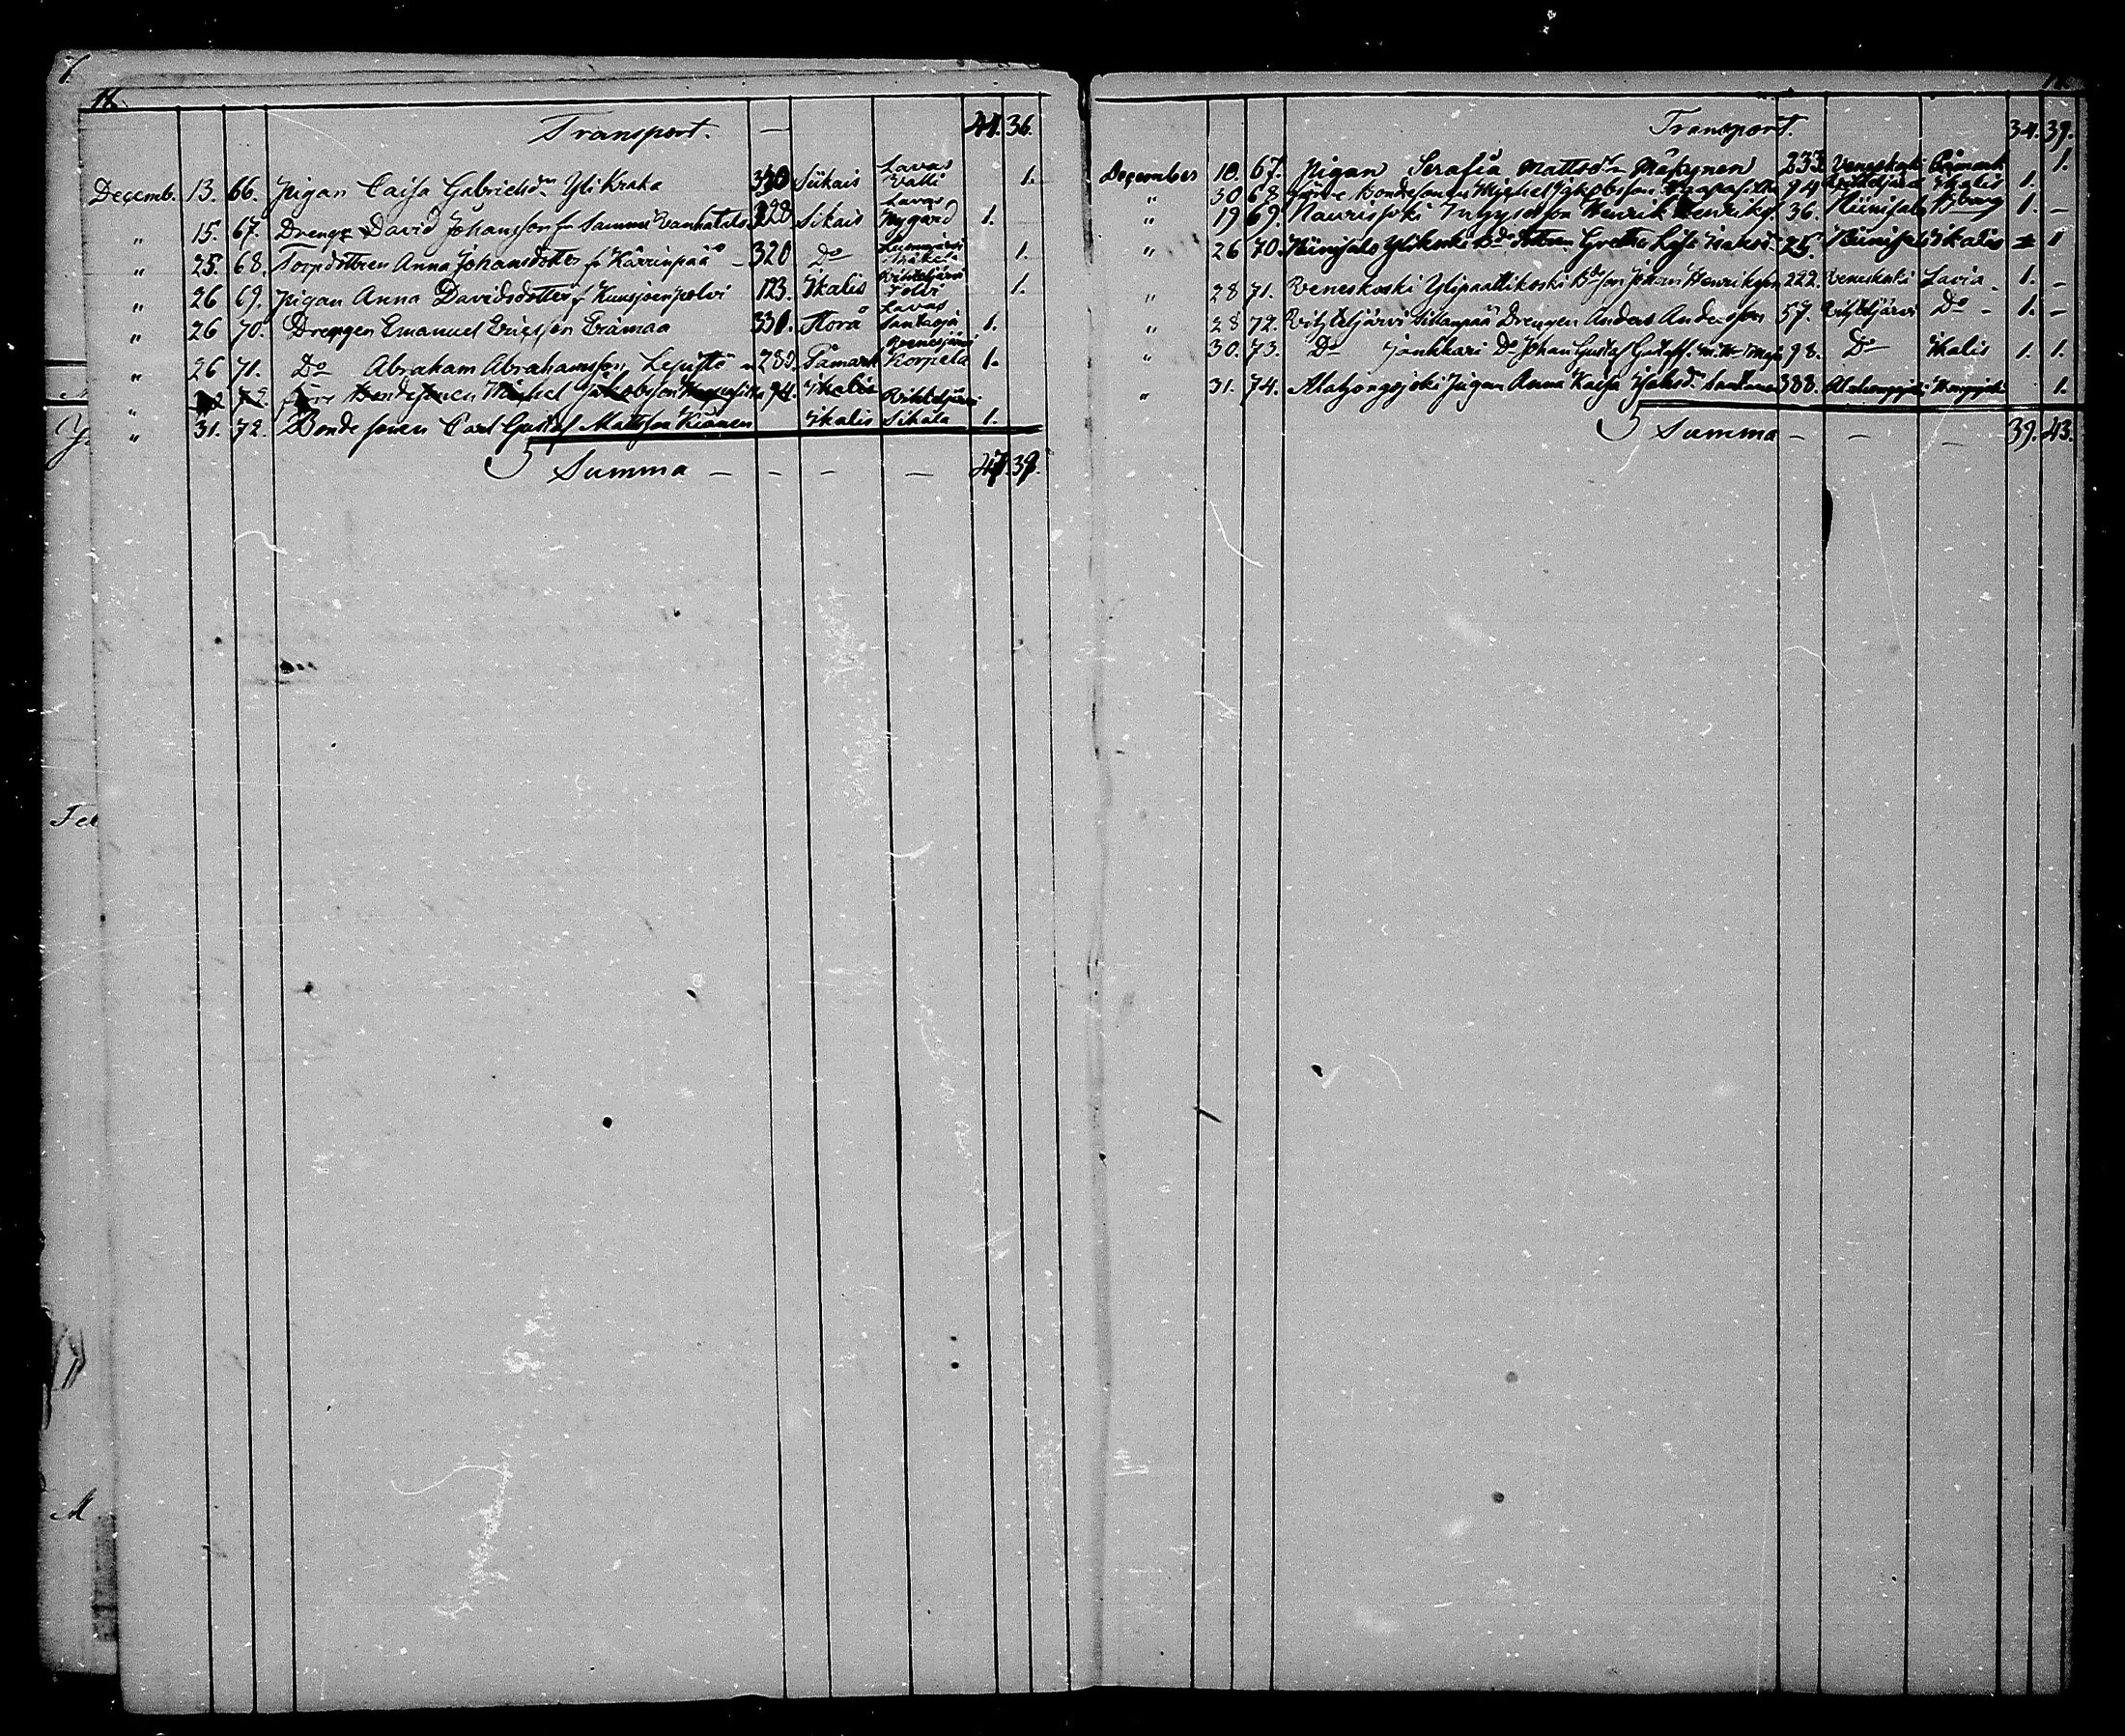 Transport. — 41. 36.
Decemb. 13. 66. Pigan Caisa Gabrielsdr Yli Kraka 330 Siikais Lavas Valli 1.
" 15. 67. Dreng David Johansson fr Sammi Vanhatalo 328 Sikais Lavas Nygård 1.
" 25. 68. Torpdottren Anna Johansdotter fr Kärrinpää — 320 Do 1.
" 26 69. Pigan Anna Davidsdotter fr Kuusjoenpolvi 123. Ikalis Wihteljärvi Polvi 1.
" 26 70. Drengen Emanuel Ericsson Erämaa 331. Storå Lavas Santaoja 1.
" 26 71. Do Abraham Abrahamsson Lepistö 282. Påmark Korpela 1.
" 72. förre Bondesonen Michel Jakobsson 94. Ikalis Wihteljärvi
" 31. 72. Bondesonen Carl Gustaf Mattsson Ikalis Sikala 1.
Summa — — — — 47. 39.
Transport. 34. 39.
December 10. 67. Pigan Serafia Mattsdr Mäkynen 233 Veneskoski Påmark 1.
" 30 68 förre Bondesonen Michel Jakobsson 94 Wihteljärvi Ikalis 1.
" 19 69. Naurisjoki Inhyses son Henrik Henriks. 36. Niinisalo B:borg 1. —
" 26 70. Niinisalo Ylikoski Bde dottren Gretha Lisa Isaksd. 25. Niinisalo Ikalis 1
" 28 71. Veneskoski Ylipaattikoski Bde son Johan Henriksson 222. Veneskoski Lavia. 1. —
" 28 72. Wihteljärvi Sillanpää Drengen Anders Andersson 57. Wihteljärvi Do — 1. —
" 30. 73. Do Jankkari Do Johan Gustaf Gustafs. 98. Do Ikalis 1. 1.
" 31. 74. Alahongojoki Pigan Anna Kaisa Isaksdr 388. Alahongojoki Hongojoki 1.
Summa — — — 39. 43.